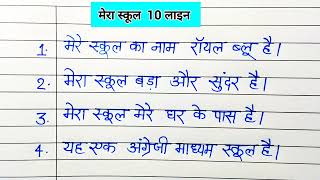 मेरा स्कूल 10 लाइन
1. मेरे स्कूल का नाम रॉयल ब्लू है।
2. मेरा स्कूल बड़ा और सुंदर है।
3. मेरा स्कूल मेरे घर के पास है।
4. यह एक अंग्रेजी माध्यम स्कूल है।